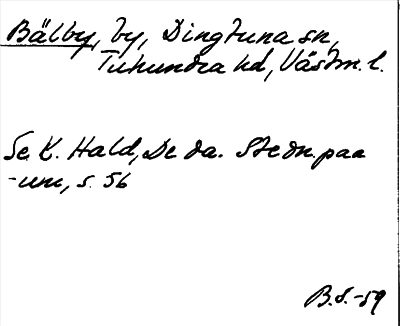 Bälby, by, Dingtuna sn,
Tuhundra hd, Västm. l.
Se K. Hald, De da. Stedn. paa
-um, s. 56
B.S.-59